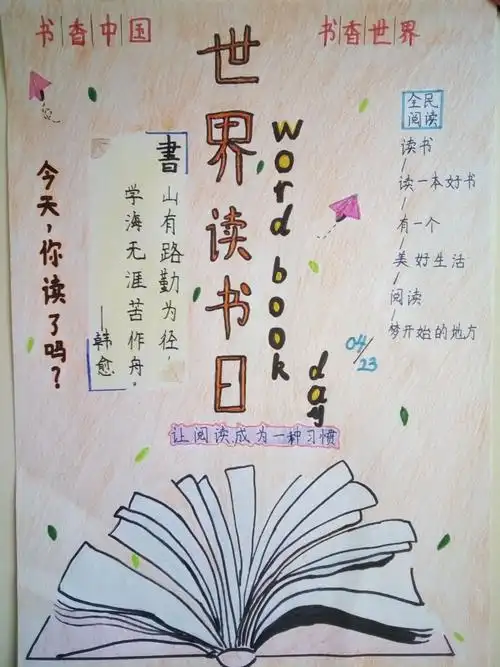 书香中国
书香世界
世界读书日
word book day
全民
阅读
读书
读一本好书
有一个
美好生活
阅读
梦开始的地方
04/23
今天,你读了吗?
書
山有路勤为径,
学海无涯苦作舟。
——韩愈
让阅读成为一种习惯